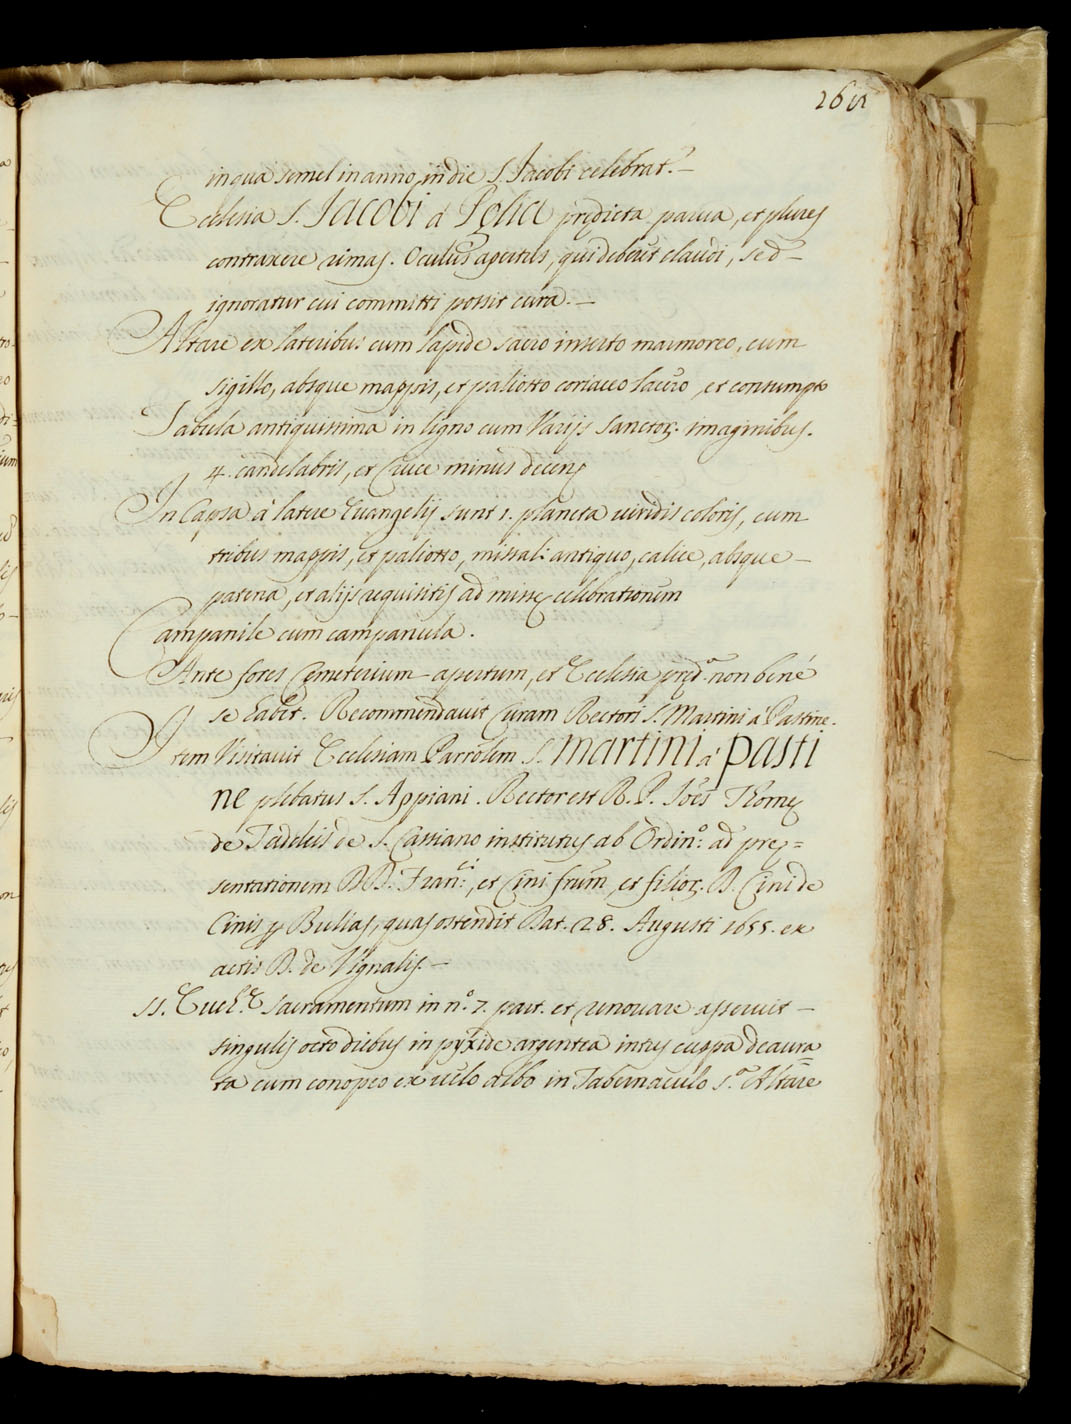 in qua semel in anno, in die S. Jacobi celebrat.r –
Ecclesia S. Jacobi à predicta parua, et plures
contraxere rimas. Oculus apertus, qui deberet claudi, sed –
ignoratur cui committi possit cura. –
Altare ex lateribus cum lapide sacro inserto marmoreo, cum
sigillo, absque mappis, et paliotto coriaceo lacero, et consumpto
Tabula antiquissima in ligno cum Varijs Sanctor. imaginibus.
4. candelabris, et Cruce minus decens
In Capsa à latere Euangelij sunt 1. planeta viridis coloris, cum
tribus mappis, et paliotto, missali antiquo, calice, absque –
patena, et alijs requisitis ad missę celebrationem
Campanile cum campanula.
Ante fores Cęmeterium apertum, et Ecclesia pręd.a non bené
se habet. Recommendauit Curam Rectori S. Martini à Pastine.
Item Visitauit Ecclesiam Parrolem S. Martini à Pasti
ne plebatus S. Appiani. Rector est R. P. Joēs Thomę
de Taddeis de S. Cassiano institutus ab Ordin.o ad prę=
sentationem DD. Fran.ci, et Cini frūm et filior. D. Cini de
Cinis p Bullas, quas ostendit Dat. 28. Augusti 1655. ex
actis D. de Vignalis. –
SS. Euch.e Sacramentum in n.o 7. part. et renouare asseruit –
singulis octo diebus in pyxide argentea intus cuppa deaura=
ta cum conopeo ex velo albo in Tabernaculo s.a Altare